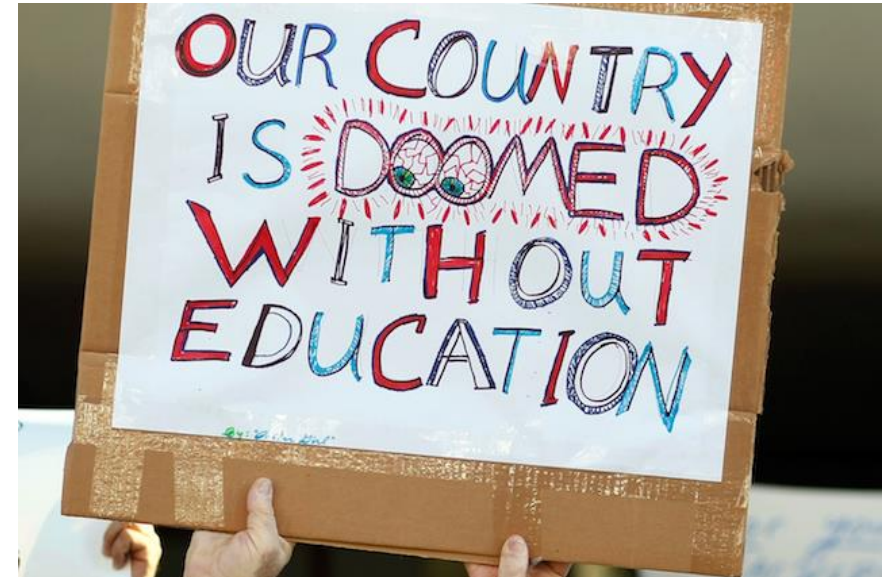 OUR COUNTRY
IS DOOMED
WITHOUT
EDUCATION
By: